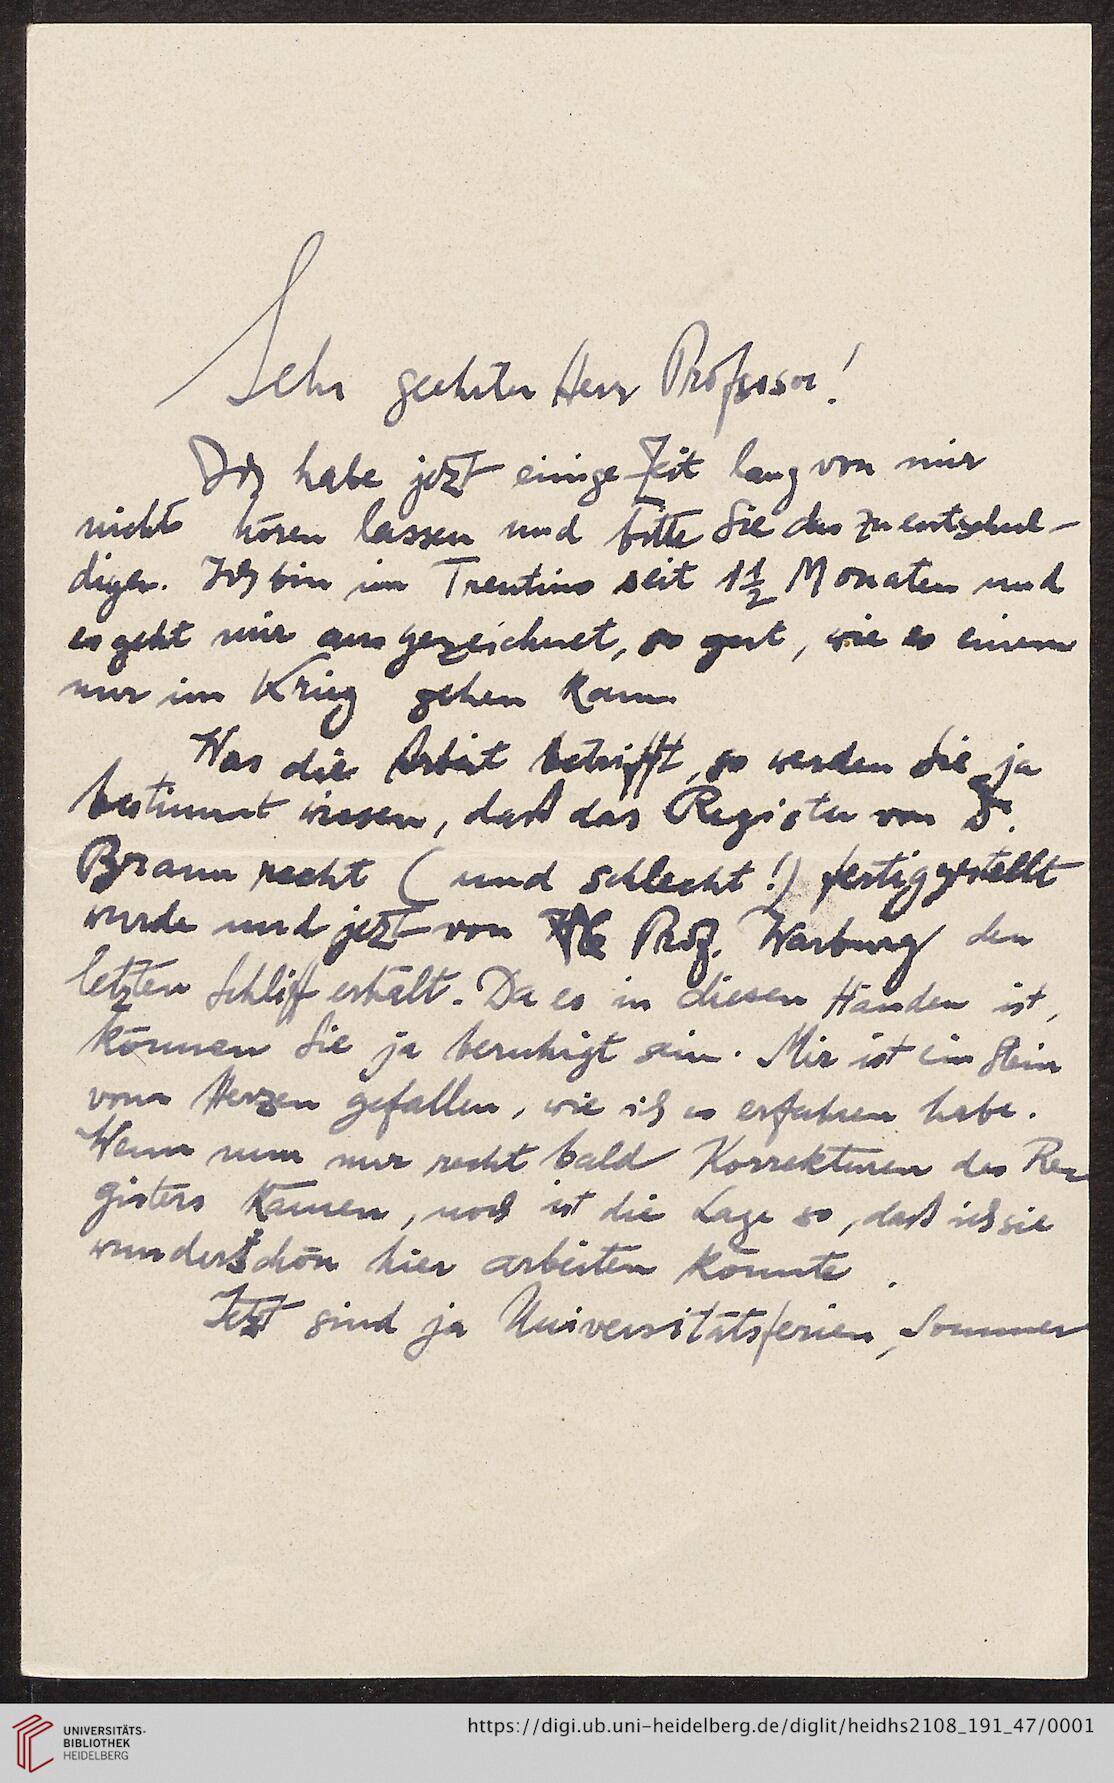 Sehr geehrter Herr Professor!
Ich habe jetzt einige Zeit lang von mir
nichts hören lassen und bitte Sie das zu entschul-
digen. Ich bin im Trentino seit 1 1/2 Monaten und
es geht mir ausgezeichnet, so gut, wie es einem
nur im Krieg gehen kann
Was die Arbeit betrifft, so werden Sie ja
bestimmt wissen, daß das Register von Dr.
Braun recht (und schlecht!) fertiggestellt
wurde und jetzt von Prof. Warburg den
letzten Schliff erhält. Da es in diesen Händen ist,
können Sie ja beruhigt sein. Mir ist ein Stein
vom Herzen gefallen, wie ich es erfahren habe.
Wenn nun nur recht bald Korrekturen des Re-
gisters kämen, noch ist die Lage so, daß ich sie
wunderschön hier arbeiten könnte.
Jetzt sind ja Universitätsferien, Sommer
UNIVERSITÄTS-
BIBLIOTHEK
HEIDELBERG
https://digi.ub.uni-heidelberg.de/diglit/heidhs2108_191_47/0001